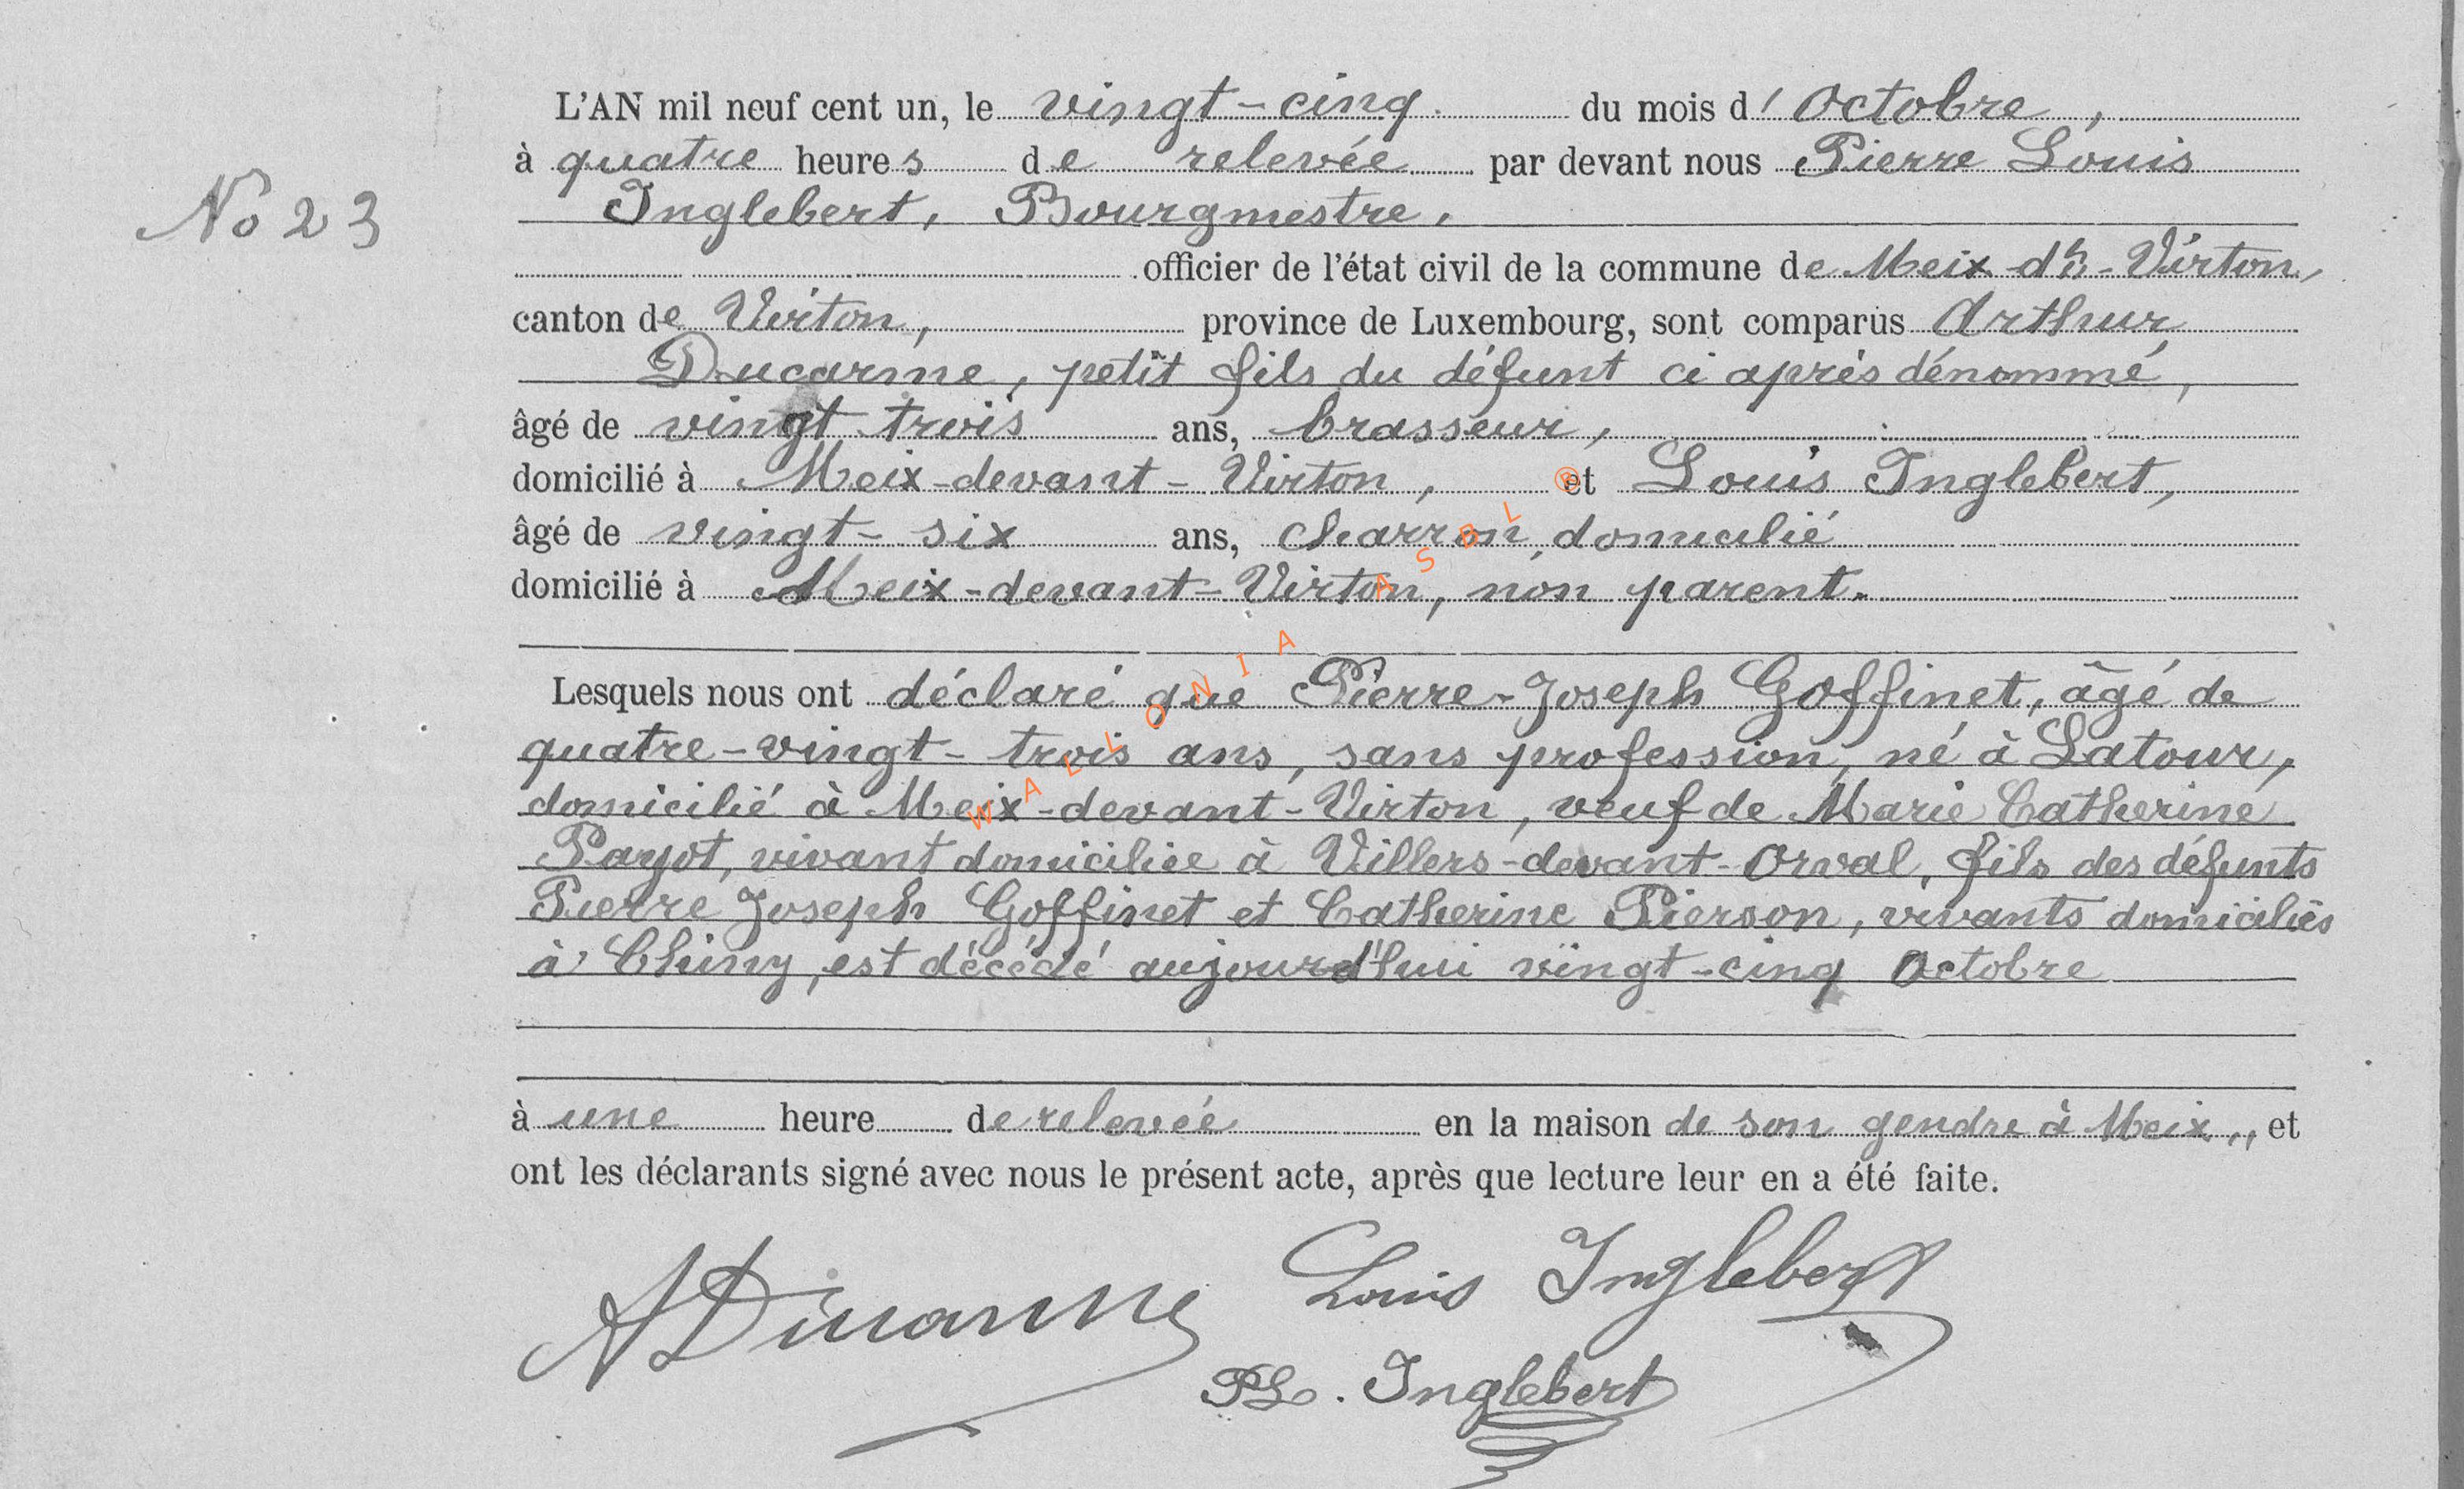 L'AN mil neuf cent un, le vingt-cinq du mois d'Octobre,
à quatre heures de relevée par devant nous Pierre Louis
No 23
Inglebert, Bourgmestre,
officier de l'état civil de la commune de Meix-dt-Virton,
canton de Virton, province de Luxembourg, sont comparus Arthur
Ducarme, petit fils du défunt ci après dénommé,
âgé de vingt trois ans, brasseur,
domicilié à Meix-devant-Virton, et Louis Inglebert,
âgé de vingt-six ans, charron, domicilié
domicilié à Meix-devant-Virton, non parent.
WALLONIA ASBL ®
Lesquels nous ont déclaré que Pierre-Joseph Goffinet, âgé de
quatre-vingt-trois ans, sans profession, né à Latour,
domicilié à Meix-devant-Virton, veuf de Marie Catherine
Payot, vivant domiciliée à Villers-devant-Orval, fils des défunts
Pierre Joseph Goffinet et Catherine Pierson, vivants domiciliés
à Chiny, est décédé aujourd'hui vingt-cinq Octobre
à une heure de relevée en la maison de son gendre à Meix,, et
ont les déclarants signé avec nous le présent acte, après que lecture leur en a été faite.
ADucarme Louis Inglebert
PL. Inglebert